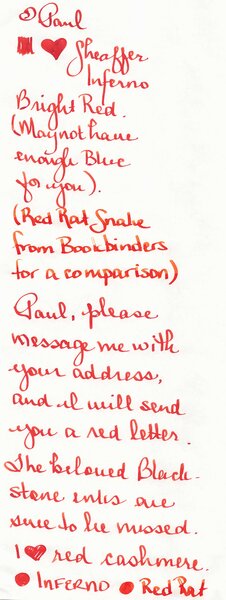 Paul
Sheaffer
Inferno
Bright Red.
(May not have
enough Blue
for you).
(Red Rat Snake
from Bookbinders
for a comparison)
Paul, please
message me with
your address,
and I will send
you a red letter.
The beloved Black-
stone inks are
sure to be missed.
I ♥ red cashmere.
INFERNO Red Rat